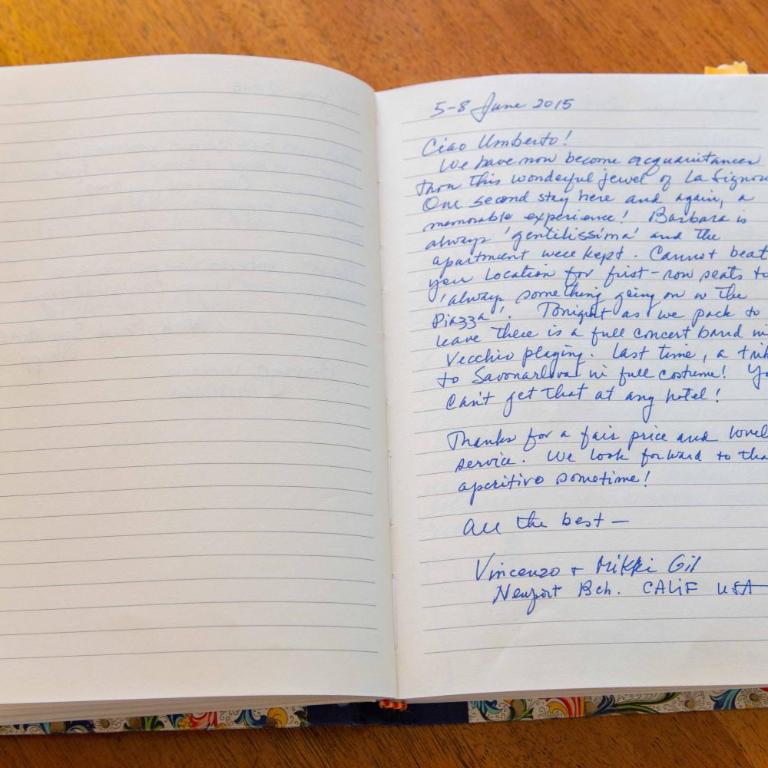 5-8 June 2015
Ciao Umberto!
We have now become acquaintances
thru this wonderful jewel of La Signor
Our second stay here and again, a
memorable experience! Barbara is
always 'gentilissima' and the
apartment were kept. Cannot beat
your location for first-row seats to
'always something going on in the
Piazza'. Tonight as we pack to
leave there is a full concert band in
Vecchio playing. Last time, a trib
to Savonarola in full costume! Yo
can't get that at any hotel!
Thanks for a fair price and lovel
service. We look forward to tha
aperitivo sometime!
All the best—
Vincenzo + Mikki Gil
Newport Bch. CALIF USA